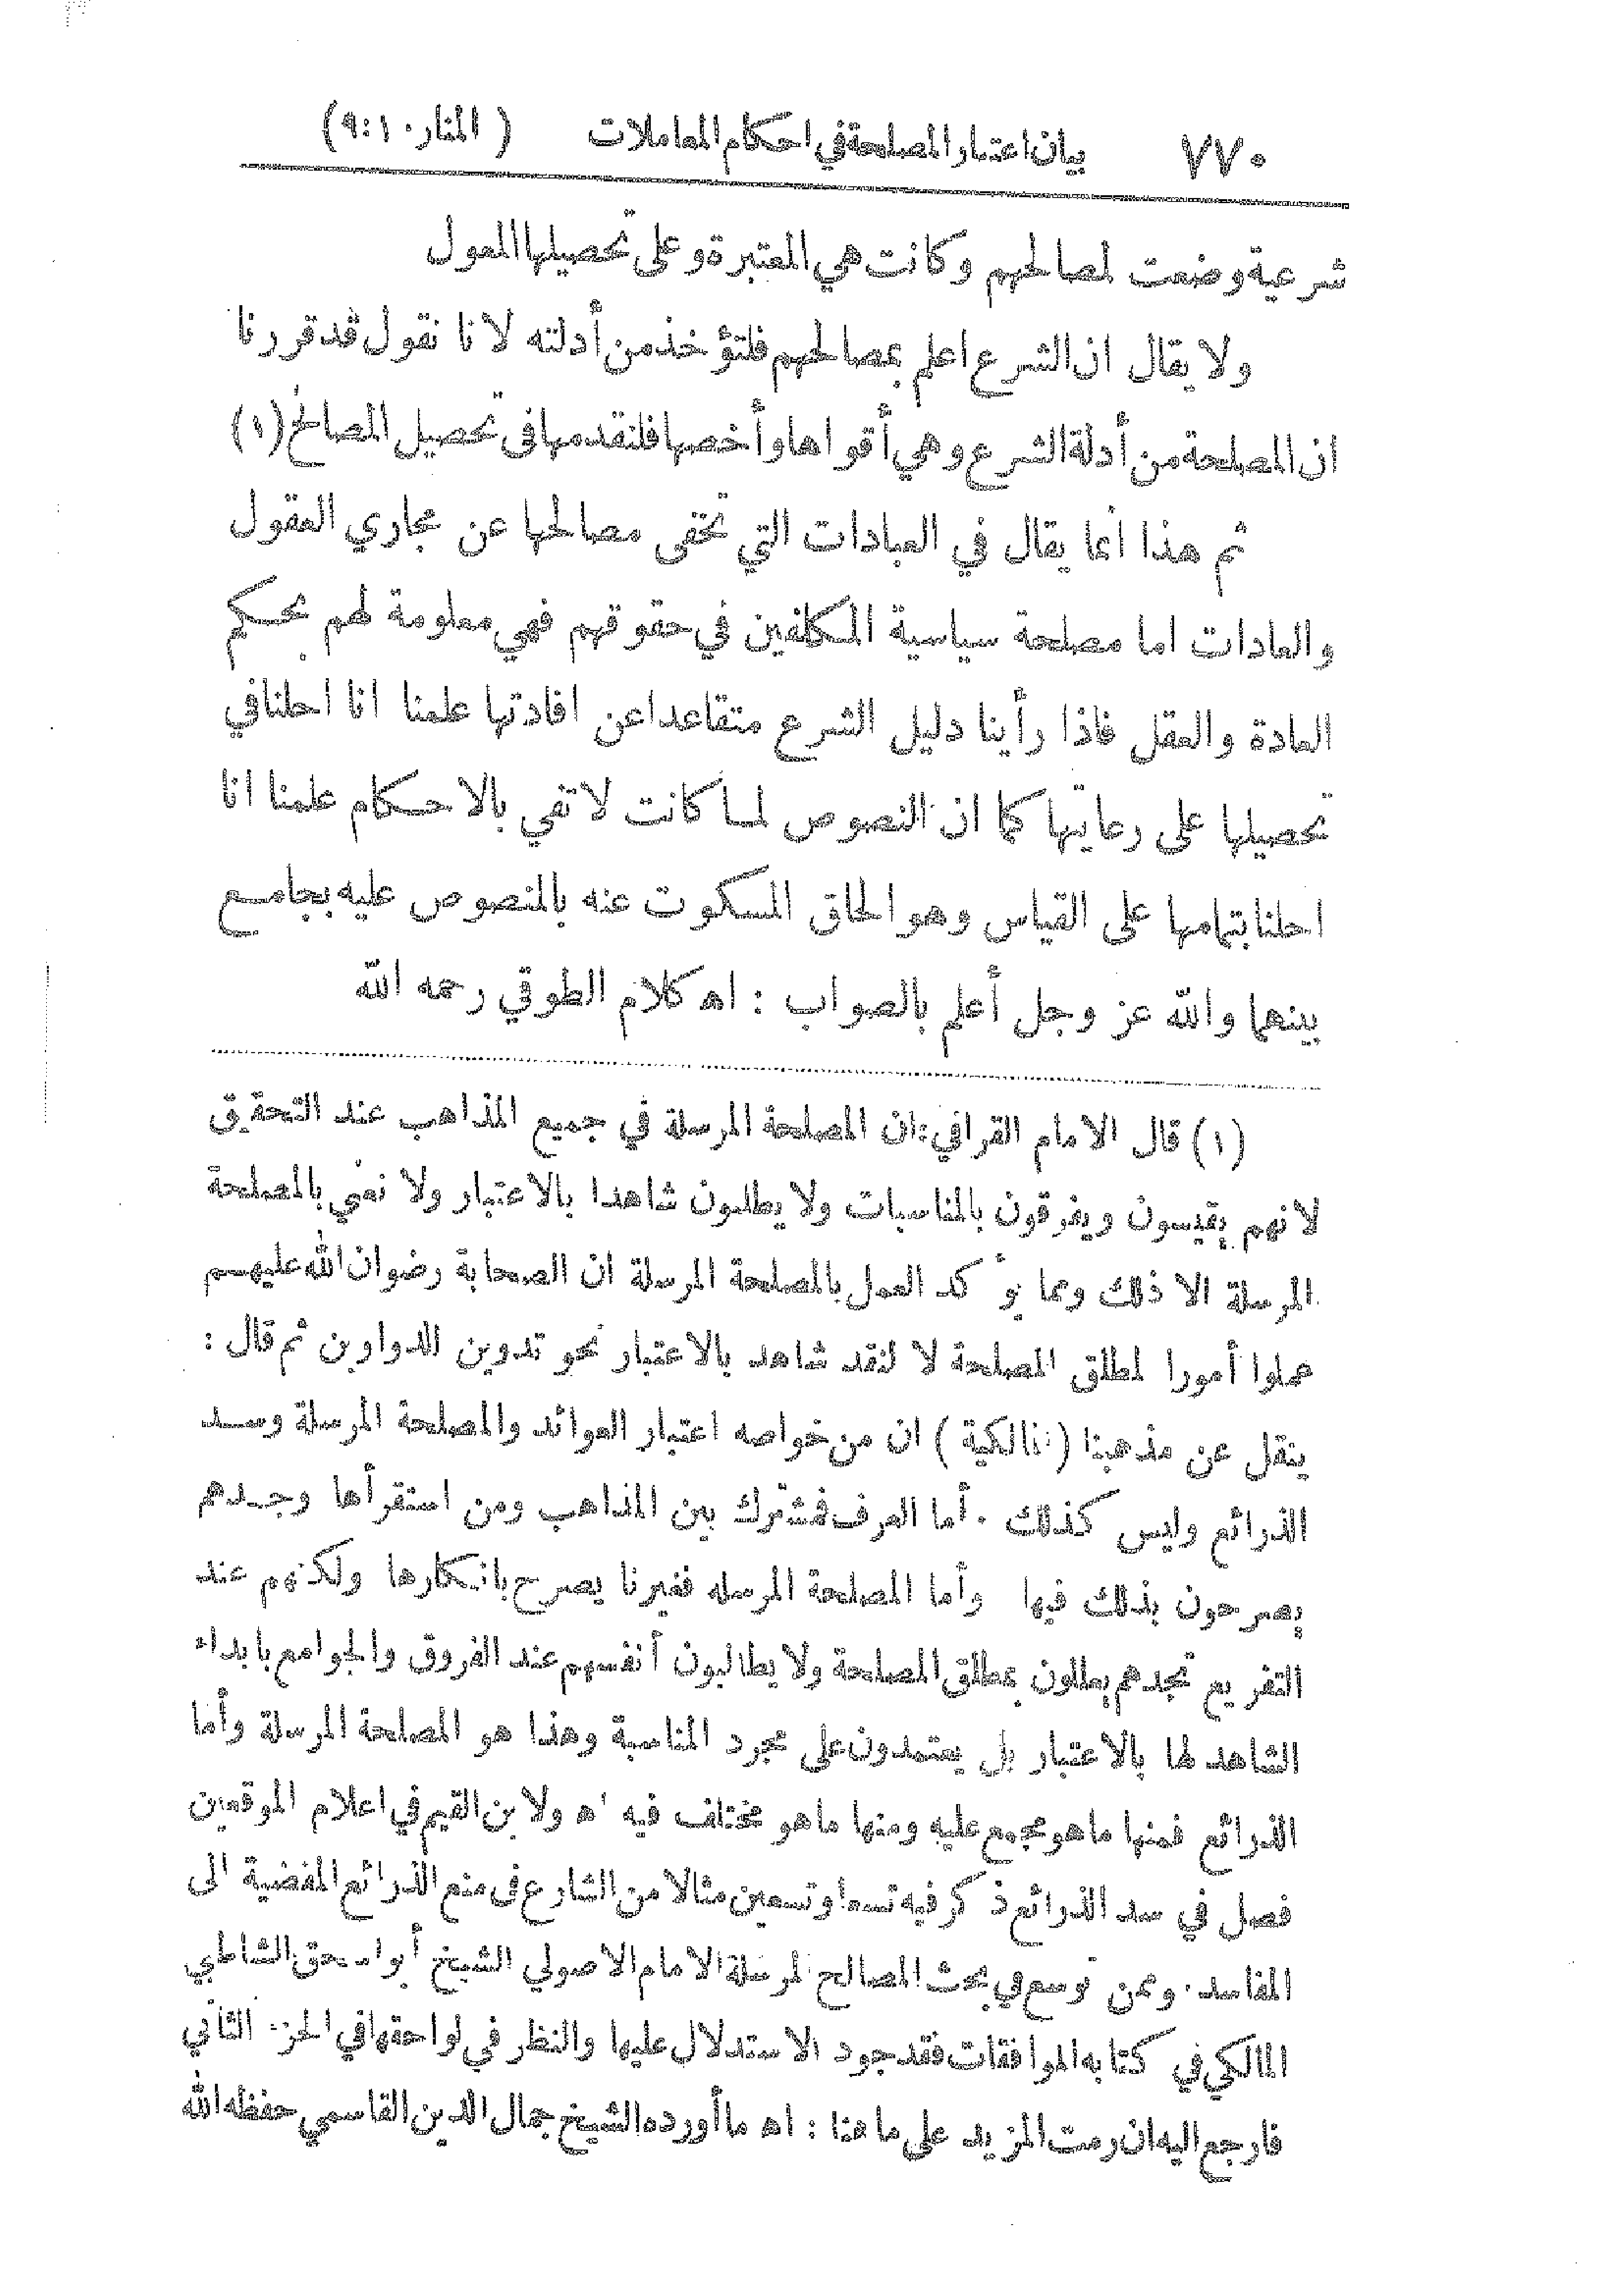 ٧٧٠ بيان اعتبار المصلحة في احكام المعاملات ( المنار ١٠ : ٩ )
شرعية وضعت لمصالحهم وكانت هي المعتبرة وعلى تحصيلها المعول
ولا يقال ان الشرع اعلم بمصالحهم فلتؤخذ من أدلته لانا نقول قد قررنا
ان المصلحة من أدلة الشرع وهي أقواها وأخصها فلنقدمها في تحصيل المصالح (١)
ثم هذا انما يقال في العبادات التي تخفى مصالحها عن مجاري العقول
والعادات اما مصلحة سياسية المكلفين في حقوقهم فهي معلومة لهم بحكم
العادة والعقل فاذا رأينا دليل الشرع متقاعدا عن افادتها علمنا انا احلنا في
تحصيلها على رعايتها كما ان النصوص لما كانت لا تفي بالاحكام علمنا انا
احلنا بتمامها على القياس وهو الحاق المسكوت عنه بالمنصوص عليه بجامع
بينهما والله عز وجل أعلم بالصواب : اه كلام الطوفي رحمه الله
(١) قال الامام القرافي : ان المصلحة المرسلة في جميع المذاهب عند التحقيق
لانهم يقيسون ويفرقون بالمناسبات ولا يطلبون شاهدا بالاعتبار ولا نعني بالمصلحة
المرسلة الا ذلك ومما يؤكد العمل بالمصلحة المرسلة ان الصحابة رضوان الله عليهم
عملوا أمورا لمطلق المصلحة لا لتقد شاهد بالاعتبار نحو تدوين الدواوين ثم قال :
ينقل عن مذهبنا ( المالكية ) ان من خواصه اعتبار العوائد والمصلحة المرسلة وسد
الذرائع وليس كذلك . أما العرف فمشترك بين المذاهب ومن استقرأها وجدهم
يصرحون بذلك فيها وأما المصلحة المرسله فغيرنا يصرح بانكارها ولكنهم عند
التفريع تجدهم يعللون بمطلق المصلحة ولا يطالبون أنفسهم عند الفروق والجوامع بابداء
الشاهد لها بالاعتبار بل يعتمدون على مجرد المناسبة وهذا هو المصلحة المرسلة وأما
الذرائع فمنها ما هو مجمع عليه ومنها ما هو مختلف فيه اه ولابن القيم في اعلام الموقعين
فصل في سد الذرائع ذكر فيه تسعا وتسعين مثالا من الشارع في منع الذرائع المفضية الى
المفاسد . وممن توسع في بحث المصالح المرسلة الامام الاصولي الشيخ أبو اسحق الشاطبي
المالكي في كتابه الموافقات فقد جود الاستدلال عليها والنظر في لواحقها في الجزء الثاني
فارجع اليه ان رمت المزيد على ما هنا : اه ما أورده الشيخ جمال الدين القاسمي حفظه الله